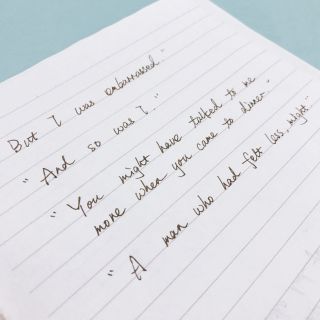 But I was embarrassed."
"And so was I."
"You might have talked to me
more when you came to dinner."
"A man who had felt less, might."